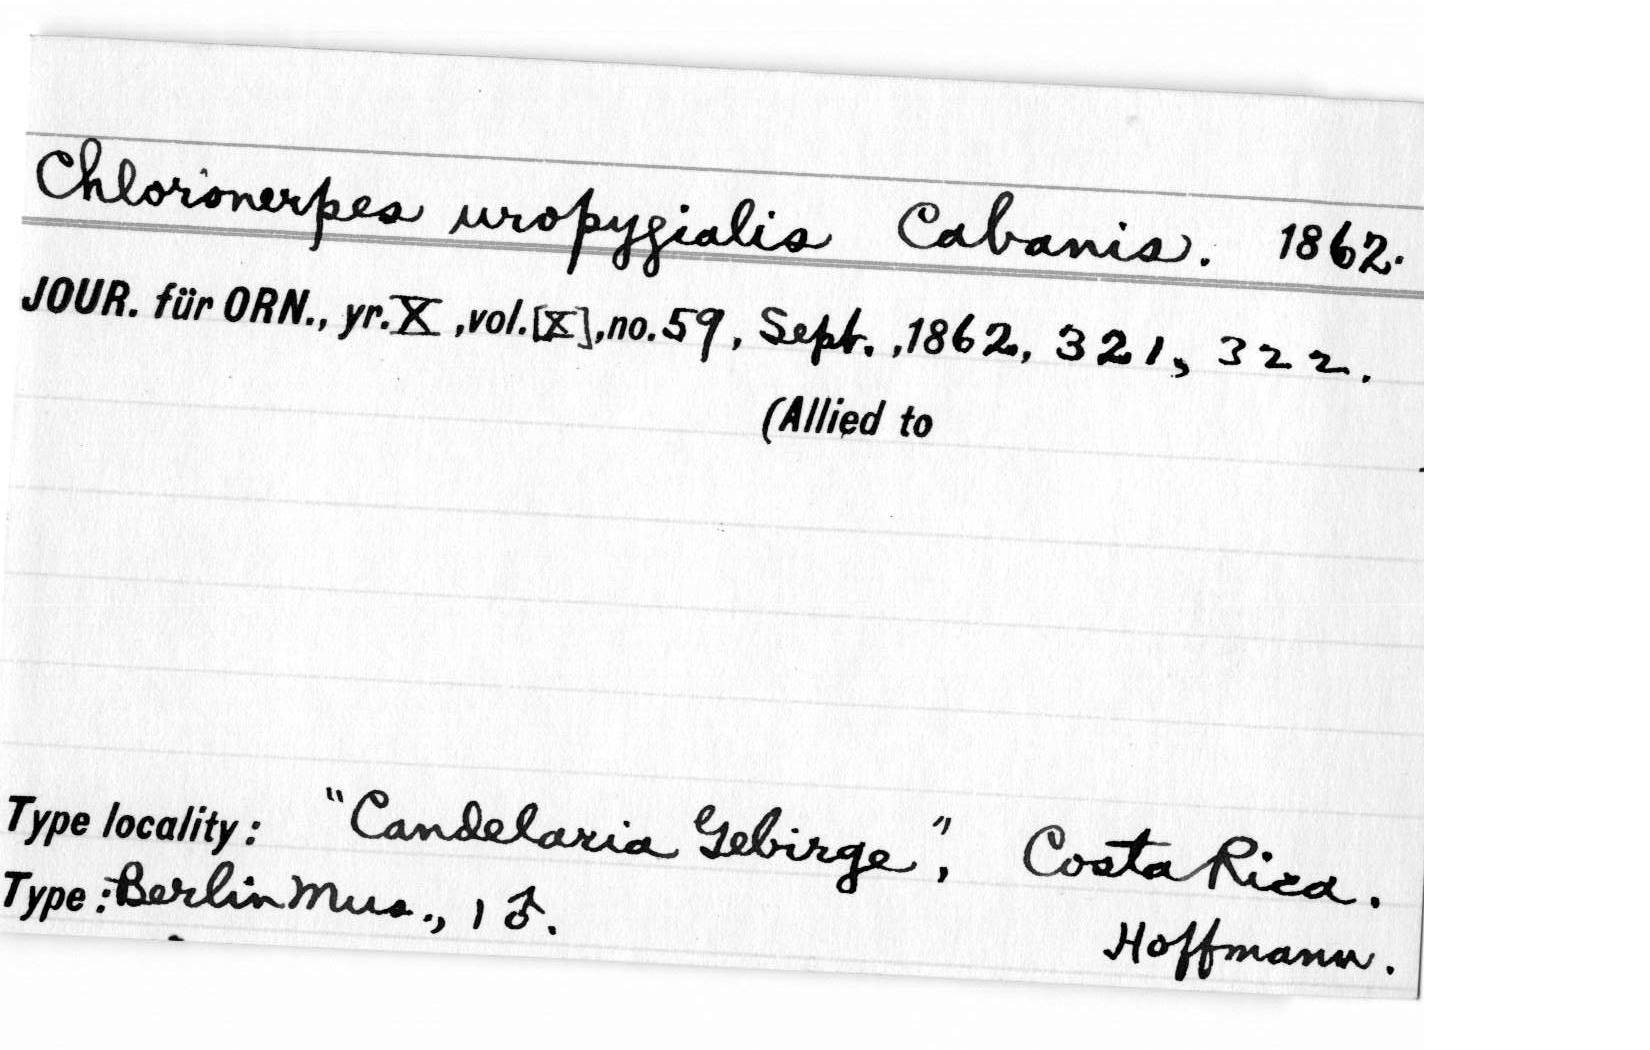 Chloronerpes uropygialis Cabanis. 1862.
JOUR. für ORN., yr. X, vol. [X], no. 59, Sept., 1862, 321, 322.
(Allied to
Type locality: "Candelaria Gebirge", Costa Rica.
Type: Berlin Mus., 1 ♂.
Hoffmann.